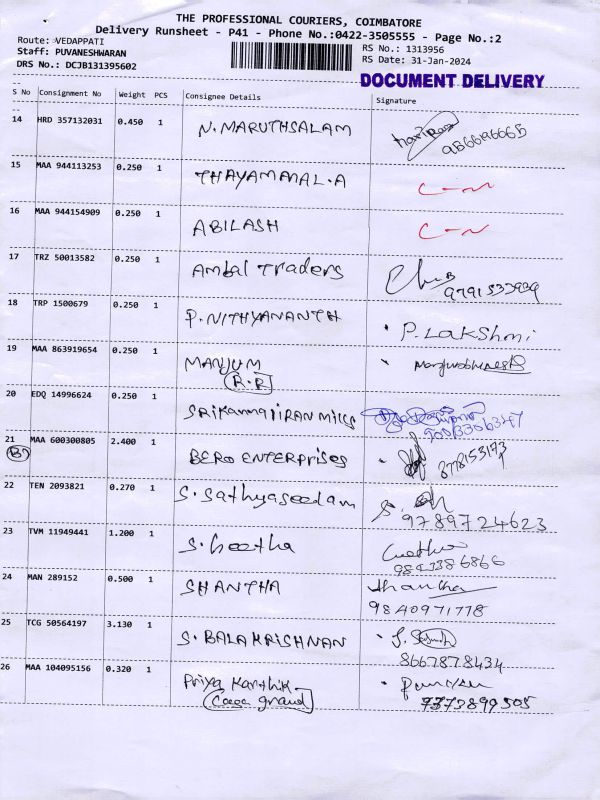 THE PROFESSIONAL COURIERS, COIMBATORE
Delivery Runsheet - P41 - Phone No.:0422-3505555 - Page No.:2
Route: VEDAPPATI
Staff: PUVANESHWARAN
DRS No.: DCJB131395602
RS No.: 1313956
RS Date: 31-Jan-2024
DOCUMENT DELIVERY
S No Consignment No Weight PCS Consignee Details Signature
14 HRD 357132031 0.450 1 N. MARUTHSALAM
15 MAA 944113253 0.250 1 THAYAMMAL.A C-N
16 MAA 944154909 0.250 1 ABILASH C-N
17 TRZ 50013582 0.250 1 Ambal Traders
18 TRP 1500679 0.250 1 P. NITHYANANTH P. LAKShmi
19 MAA 863919654 0.250 1 MANJUM
(R.R)
20 EDQ 14996624 0.250 1
21 MAA 600300805 2.400 1 BERO ENTERPRISES
8778153173
22 TEN 2093821 0.270 1 S. Sathyaseedam S.
9789724623
23 TVM 11949441 1.200 1 S. Geetha
24 MAN 289152 0.500 1 SHANTHA Shantha
9840971778
25 TCG 50564197 3.130 1 S. BALAKRISHNAN
8667878434
26 MAA 104095156 0.320 1 Priya Karthik
Casa grand 7373899505